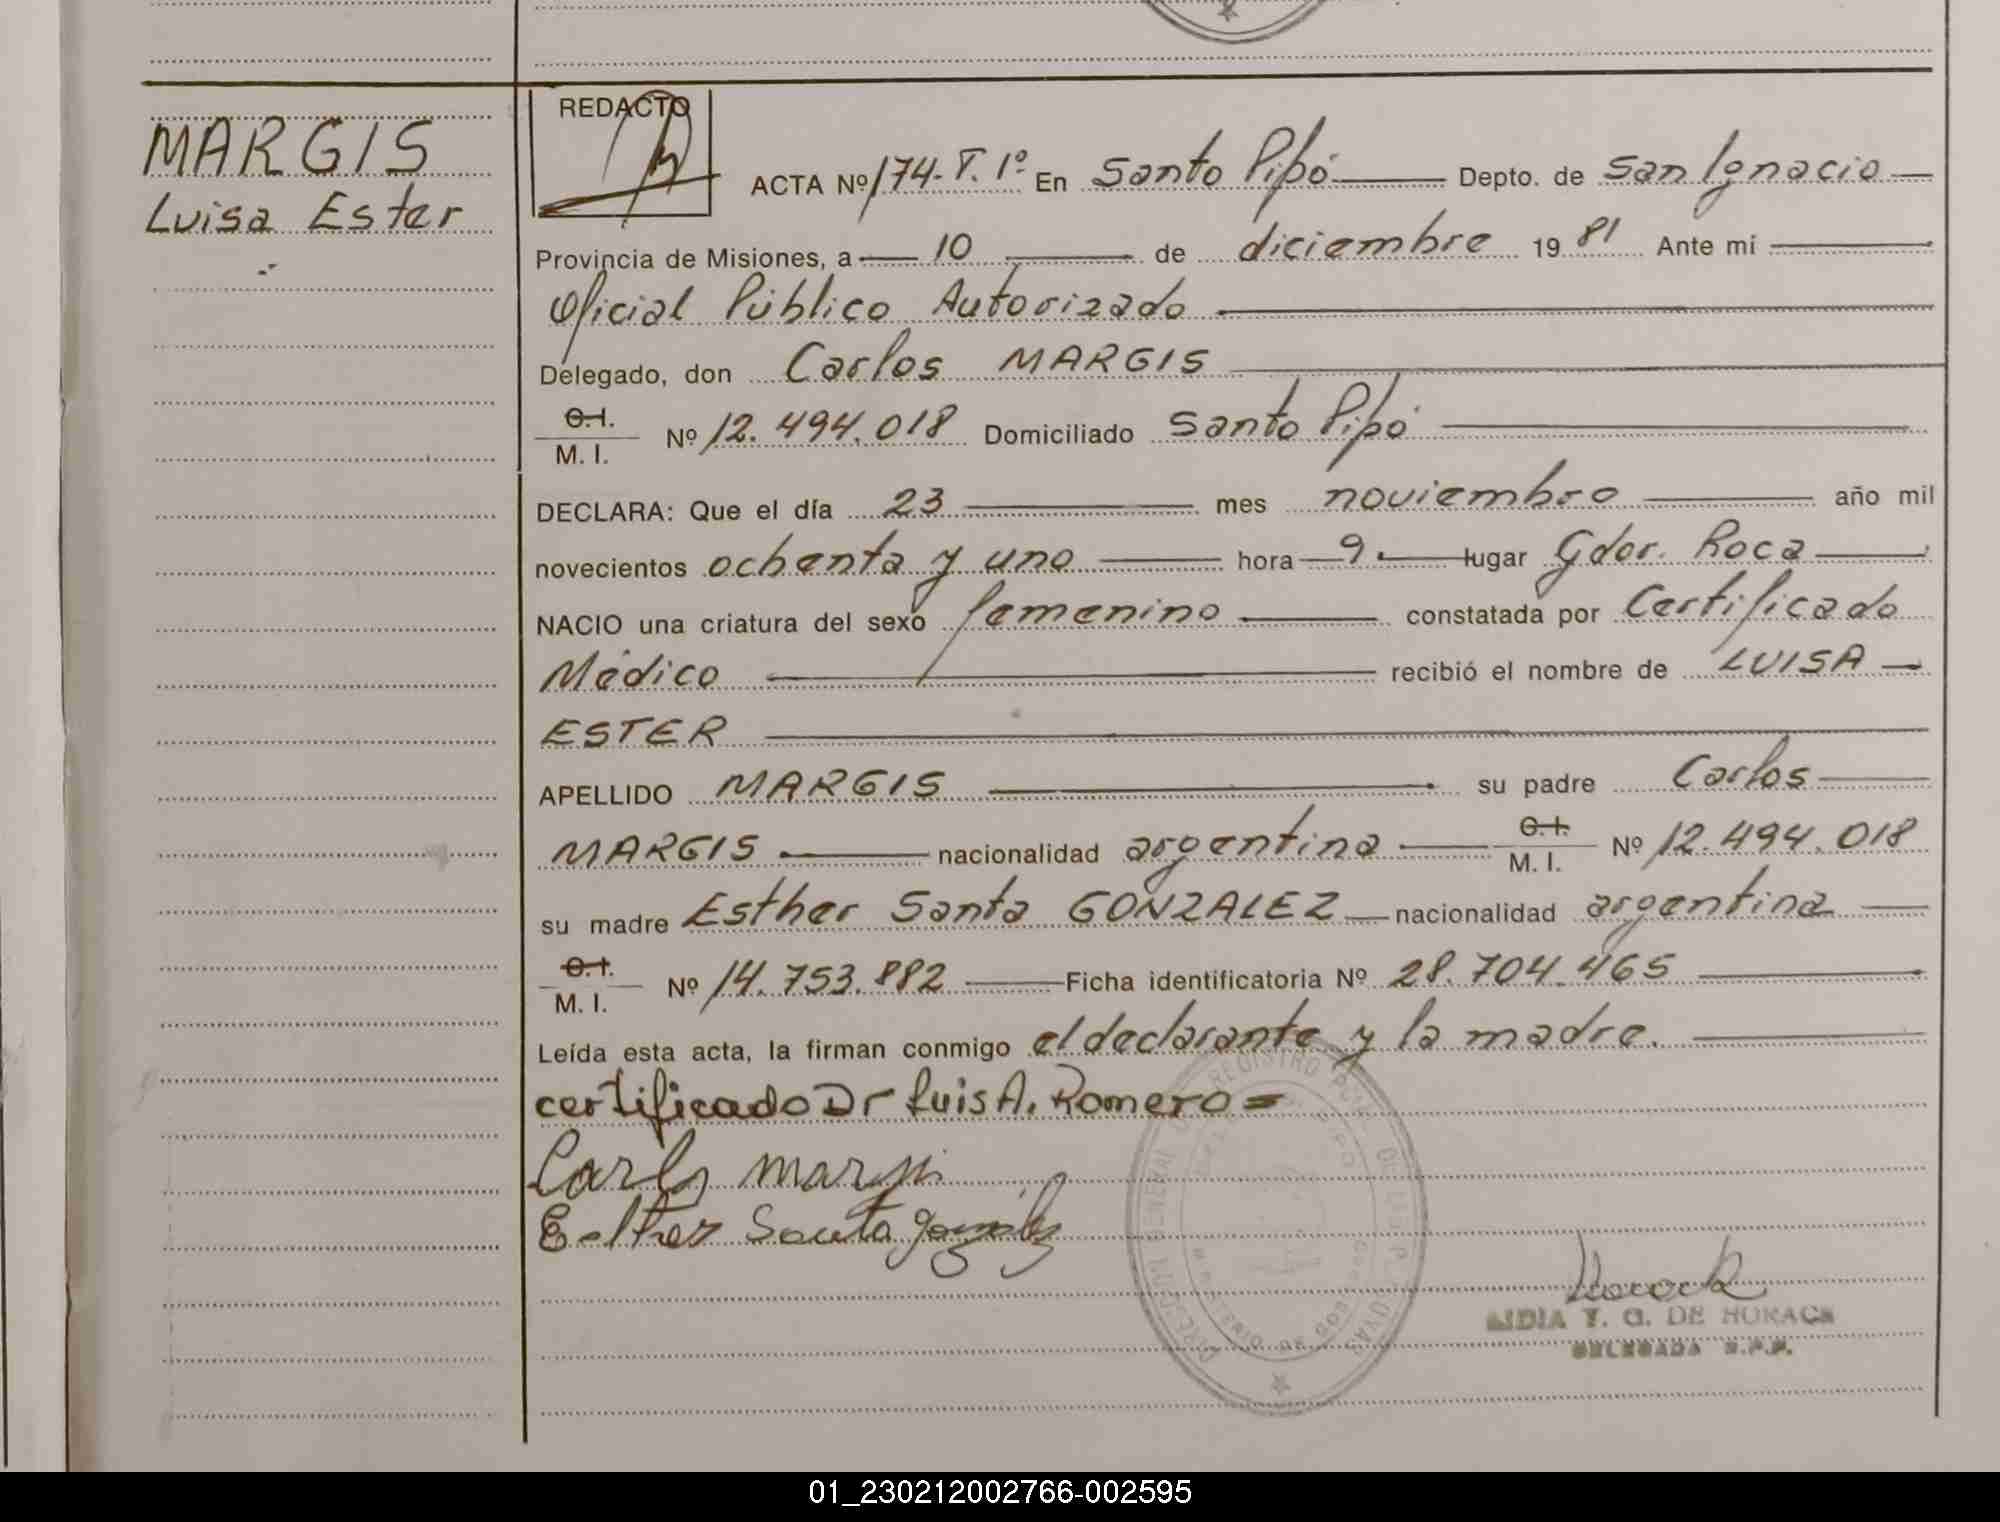 MARGIS
Luisa Ester
REDACTO
ACTA Nº 174-T. 1º En Santo Pipó Depto. de San Ignacio
Provincia de Misiones, a 10 de diciembre 1981 Ante mí
Oficial Público Autorizado
Delegado, don Carlos MARGIS
C.I.
M. I. Nº 12.494.018 Domiciliado Santo Pipó
DECLARA: Que el día 23 mes noviembre año mil
novecientos ochenta y uno hora 9 lugar Gdor. Roca
NACIO una criatura del sexo femenino constatada por Certificado
Médico recibió el nombre de LUISA
ESTER
APELLIDO MARGIS su padre Carlos
MARGIS nacionalidad argentina C.I. M. I. Nº 12.494.018
su madre Esther Santa GONZALEZ nacionalidad argentina
C.I.
M. I. Nº 14.753.882 Ficha identificatoria Nº 28.704.465
Leída esta acta, la firman conmigo el declarante y la madre.
certificado Dr Luis A. Romero =
Carlos Margis
Esther Santa Gonzalez
DIRECCION GENERAL DE REGISTRO PCIAL. DE LAS P
LIDIA T. G. DE HORACK
DELEGADA R.P.P.
01_230212002766-002595